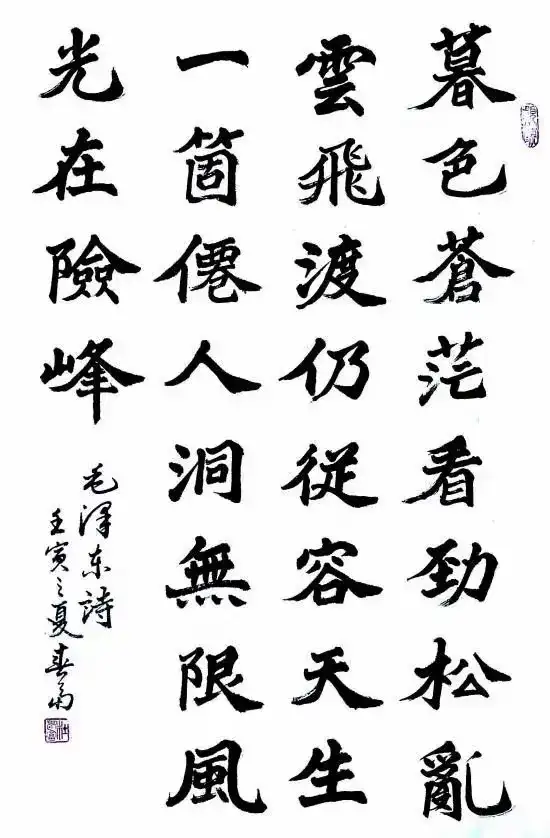 暮色蒼茫看勁松亂
雲飛渡仍從容天生
一箇僊人洞無限風
光在險峰
毛澤东詩
壬寅之夏春